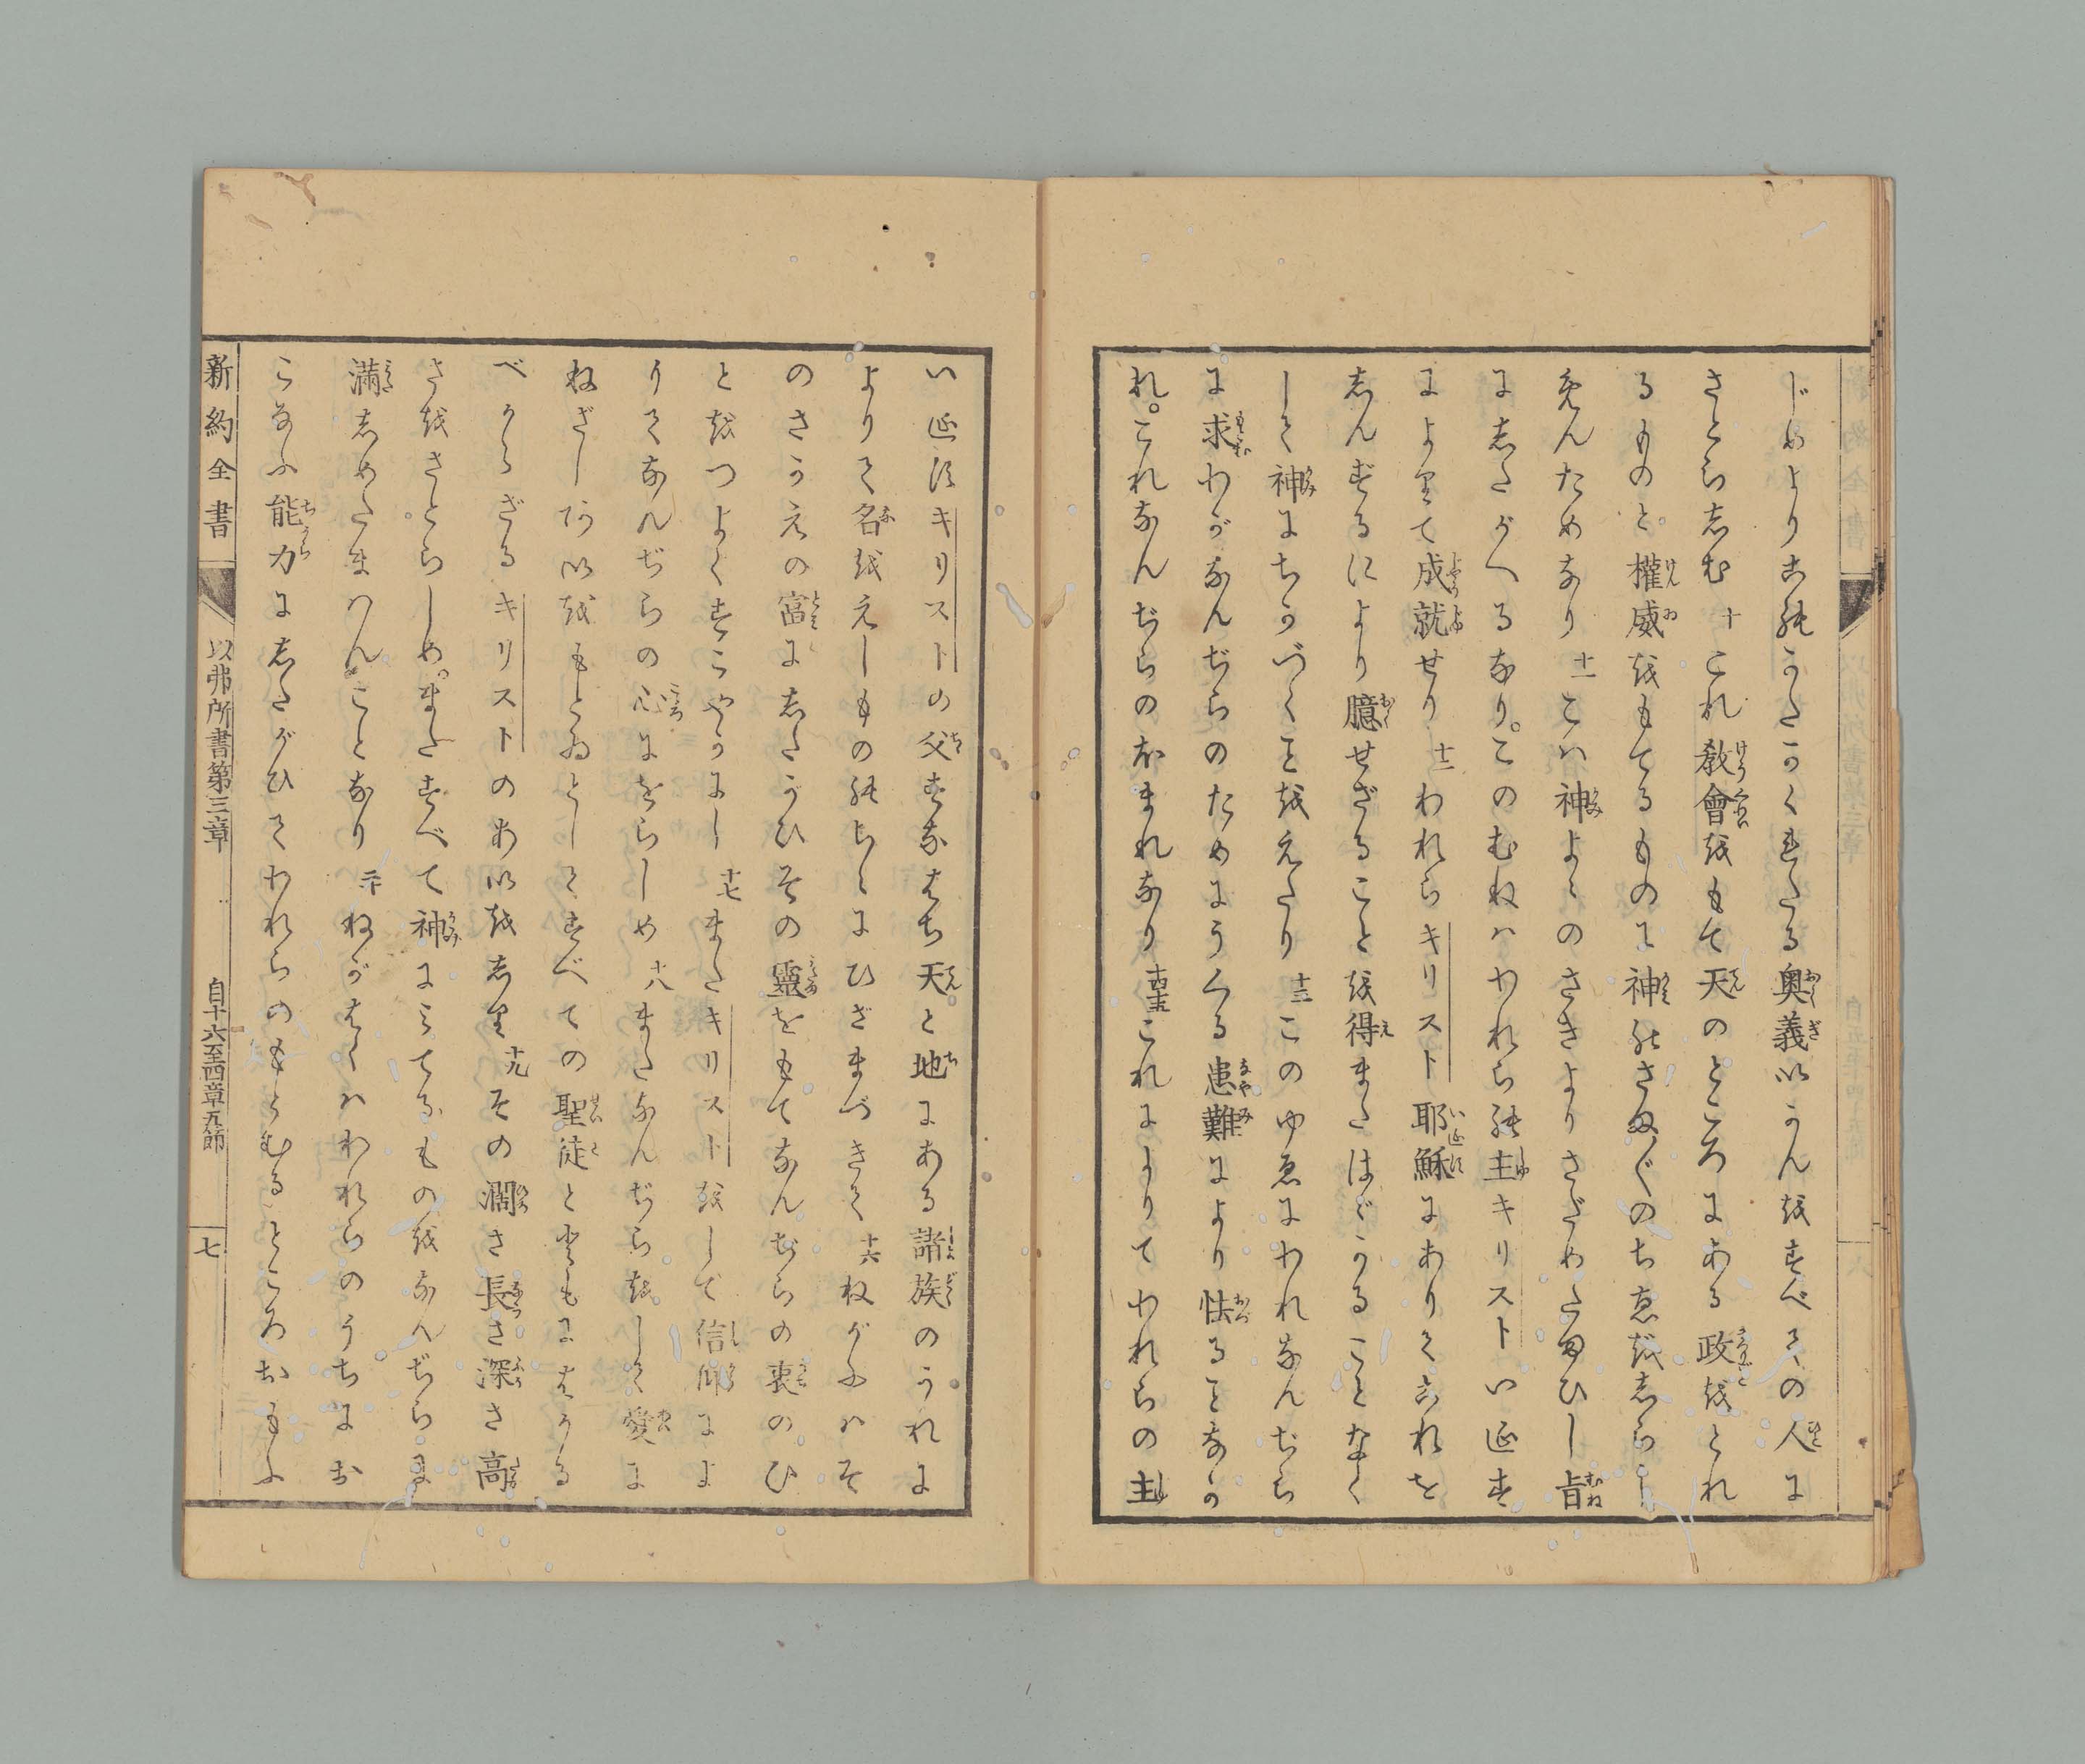 じめよりこのかたかくれたる奥義いかんをすべての人に
さとらしむ 十 これ教會をもて天のところにある政をとれ
るものと權威をもてるものに神のさま〲のちゑをしらし
めんためなり 十一 こは神よゝのさきよりさだめたまひし旨
にしたがへるなり。このむねはわれらの主キリストいエす
によりて成就せり 十二 われらキリスト耶穌にありてこれを
しんずるにより臆せざることを得またはゞかることなく
して神にちかづくことをえたり 十三 このゆゑにわれなんぢら
に求わがなんぢらのためにうくる患難により怯ることなか
れ。これなんぢらのほまれなり 十四十五 これによりてわれらの主
いエスキリストの父すなはち天と地にある諸族のうれに
よりて名をえしものゝちゝにひざまづきて 十六 ねがふはそ
のさかえの富にしたがひその靈をもてなんぢらの衷のひ
とをつよくすこやかにし 十七 またキリストをして信仰によ
りてなんぢらの心にをらしめ 十八 またなんぢらをして愛に
ねざし
いをもとゐとしてすべての聖徒とともにはかる
べからざるキリストのあいをしり 十九 その濶さ長さ深さ高
さをさとらしめ。またすべて神にみてるものをなんぢらに
滿しめたまはんことなり 二十 ねがはくはわれらのうちにお
こなふ能力にしたがひてわれらのもとむるところおもふ
新約全書 以弗所書第三章 自十六至四章五節 七